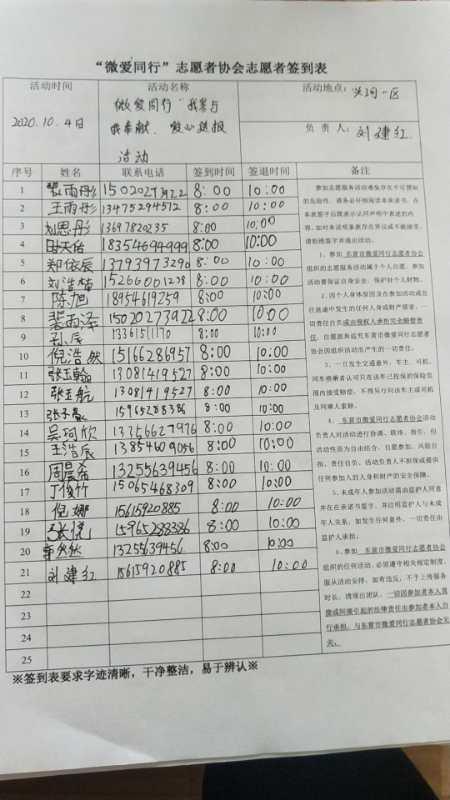 “微爱同行”志愿者协会志愿者签到表
活动时间 活动名称 活动地点：洪河一区
2020.10.4日 微爱同行 我参与 我奉献 爱心送报 活动 负责人：刘建红
序号 姓名 联系电话 签到时间 签退时间 备注
1 裴雨彤 15020273922 8:00 10:00
2 王雨彤 13475294572 8:00 10:00
3 刘思彤 13697820235 8:00 10:00
4 田天佑 18354694999 8:00 10:00
5 郑依辰 13793973290 8:00 10:00
6 刘浩楠 15266001238 8:00 10:00
7 陈旭 18954619259 8:00 10:00
8 裴雨泽 15020273922 8:00 10:00
9 孙辰 13361511170 8:00 10:00
10 倪浩然 15166286957 8:00 10:00
11 张玉翰 13081419527 8:00 10:00
12 张玉航 13081419527 8:00 10:00
13 15965288386 8:00 10:00
14 吴珂欣 13256627976 8:00 10:00
15 王浩辰 13854609056 8:00 10:00
16 周晨希 13255639456 8:00 10:00
17 丁俊竹 15065468309 8:00 10:00
18 倪娜 15615920885 8:00 10:00
19 张悦 15965288386 8:00 10:00
20 13255639456 8:00 10:00
21 刘建红 15615920885 8:00 10:00
22
23
24
25
参加志愿服务活动难免存在不可预知
的危险性，请务必仔细阅读本承诺书，在
本表签字后既表示认同声明中表述的内
容。如对本承诺条款存在异议或不能接受，
请拒绝签字并退出活动。
1、参加 东营市微爱同行志愿者协会
组织的志愿服务活动属于个人自愿，参加
活动费保证自身安全，保护好个人财物。
2、因个人身体原因及在参加活动或往
返途中发生的任何人身或财产损害，一
切责任首先由侵权人承担完全赔偿责
任，自愿放弃追究东营市微爱同行志愿者
协会因组织活动引发产生的一切责任。
3、一旦发生交通意外，车主、司机、
同车搭乘者认可只在该车已投保的保险范
围内接受赔偿，不得另行向该车主或司机
及同乘人索赔。
4、 东营市微爱同行志愿者协会活动
负责人对活动进行协调、联络、指引，但
活动性质为自由结合，自愿参加，风险自
担，责任自负。活动负责人不担保或提供
任何参加人的人身和财产的安全保障。
5、未成年人参加活动需由监护人同意
并在在承诺书签字，并注明监护人与未成
年人关系，如发生任何意外，一切责任由
监护人承担。
6、参加 东营市微爱同行志愿者协会
组织的任何活动，必须遵守相关规定制度，
服从活动安排，如有违反，不予上传服务
时长，请项目团队。一切因参加者本人直
接或间接引起的法律责任由参加者本人自
行承担，与东营市微爱同行志愿者协会无
关。
※签到表要求字迹清晰，干净整洁，易于辨认※